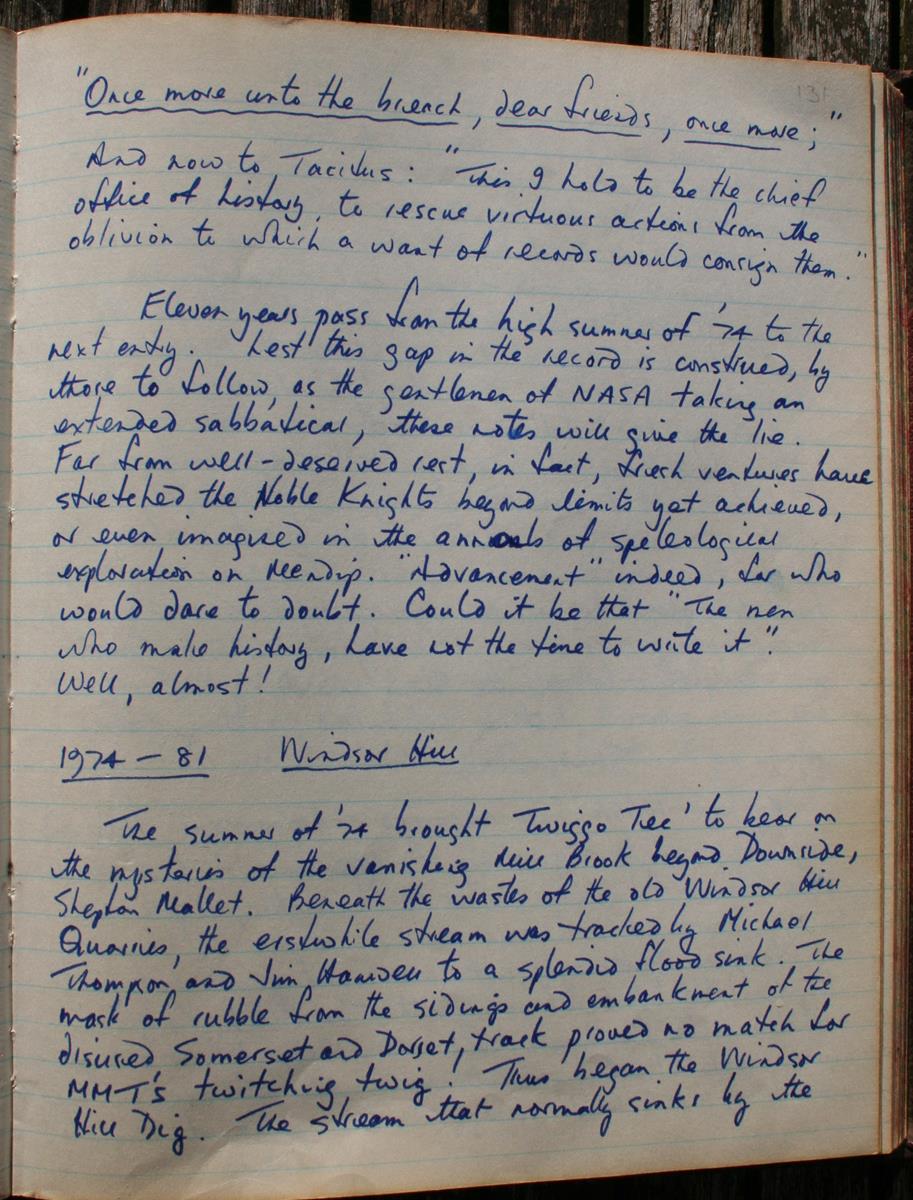 131
"Once more unto the breach, dear friends, once more;"
And now to Tacitus: "This I hold to be the chief
office of history, to rescue virtuous actions from the
oblivion to which a want of records would consign them."
Eleven years pass from the high summer of '74 to the
next entry. Lest this gap in the record is construed, by
those to follow, as the gentlemen of NASA taking an
extended sabbatical, these notes will give the lie.
Far from well-deserved rest, in fact, fresh ventures have
stretched the Noble Knights beyond limits yet achieved,
or even imagined in the annals of speleological
exploration on Mendip. "Advancement" indeed, for who
would dare to doubt. Could it be that "The men
who make history, have not the time to write it".
Well, almost!
1974 - 81 Windsor Hill
The summer of '74 brought 'Twiggo Tec' to bear on
the mysteries of the vanishing Mill Brook beyond Downside,
Shepton Mallet. Beneath the wastes of the old Windsor Hill
Quarries, the erstwhile stream was tracked by Michael
Thompson and Jim Hanwell to a splendid flood sink. The
mask of rubble from the sidings and embankment of the
disused Somerset and Dorset, track proved no match for
MMT's twitching twig! Thus began the Windsor
Hill Dig. The stream that normally sinks by the